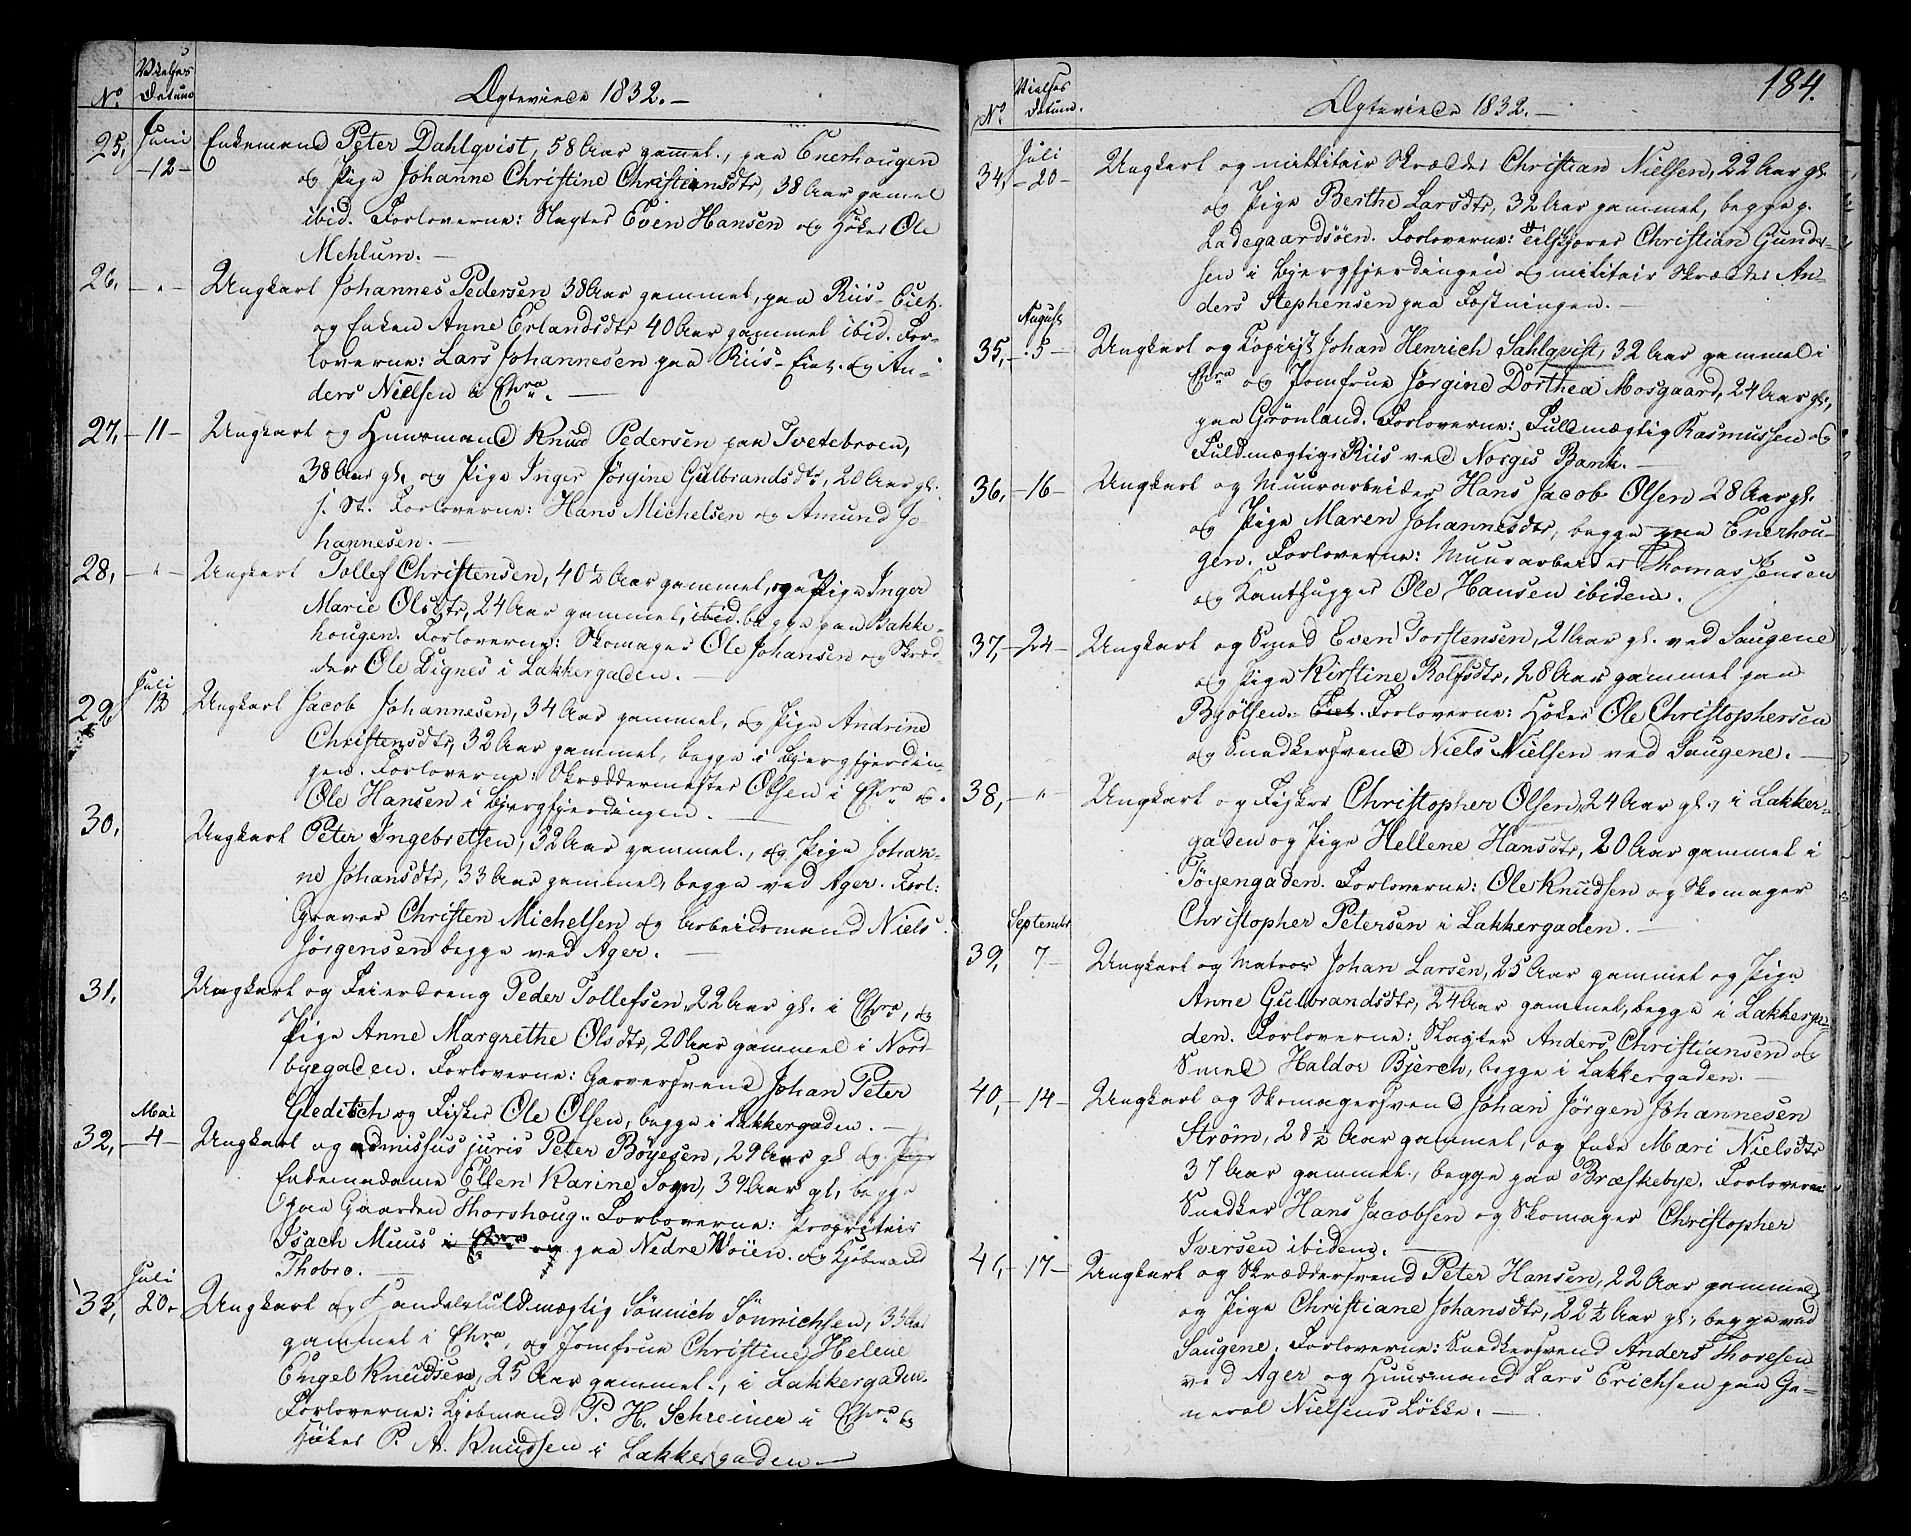 No. Vielses Datum Ægteviede 1832.-
25, Juni -12- Enkemand Peter Dahlqvist, 58 Aar gammel, paa Enerhougen
og Pige Johanne Christine Christiansdtr, 38 Aar gamel
ibid. Forloverne: Slagter Even Hansen og Høker Ole
Mehlum.-
26, - " - Ungkarl Johannes Pedersen 38 Aar gammel, paa Riis-Eiet.
og Enken Anne Erlandsdtr 40 Aar gammel ibid. For-
loverne: Lars Johannesen paa Riis-Eiet. og An-
ders Nielsen i Chra. -
27, - 11 - Ungkarl og Huusmand Knud Pedersen paa Tvetebroen,
38 Aar gl. og Pige Inger Jørgine Gulbrandsdtr, 20 Aar gl.
s. St. Forloverne: Hans Michelsen og Amund Jo-
hannesen. -
28, - " - Ungkarl Tollef Christensen, 40½ Aar gammel, og Pige Inger
Marie Olsdtr, 24 Aar gammel, ibid. begge paa Bakke-
hougen. Forloverne: Skomager Ole Johansen og Skræd-
der Ole Dignes i Lakkergaden. -
29, Juli 13 Ungkarl Jacob Johannesen, 34 Aar gammel, og Pige Andrine
Christensdtr, 32 Aar gammel, begge i Bjergfjerdin-
gen. Forloverne: Skræddermester Olsen i Chra og
Ole Hansen i Bjergfjerdingen. -
30, Ungkarl Peter Ingebretsen, 32 Aar gammel, og Pige Johan-
ne Johansdtr, 33 Aar gammel, begge ved Ager. Forl:
Graver Christen Michelsen og Arbeidsmand Niels
Jørgensen begge ved Ager. -
31, Ungkarl og Feierdreng Peder Tollefsen, 22 Aar gl. i Chra, og
Pige Anne Margrethe Olsdtr, 20 Aar gammel i Nord-
byegaden. Forloverne: Garversvend Johan Peter
Gleditsch og Fisker Ole Olsen, begge i Lakkergaden. -
32, Mai - 4 - Ungkarl og admissus juris Peter Bøyesen, 29 Aar gl og Pige
Enkemadame Ellen Karine Sogn, 39 Aar gl, begge
paa Gaarden Thorshoug.. Forloverne: Proprietair
Isach Muus i Chra og paa Nedre Woien. og Kjøbmand
Thobro. -
33, Juli 20. Ungkarl og Handelsfuldmægtig Sönnich Sönnichsen, 31 Aar
gammel i Chra, og Jomfrue Christine Helene
Engel Knudsen, 25 Aar gammel, i Lakkergaden.
Forloverne: Kjøbmand P. H. Schreiner i Chra og
Høker P. A. Knudsen i Lakkergaden. -
184.
No. Vielses Datum. Ægteviede 1832. -
34, Juli - 20 - Ungkarl og militair Skrædder Christian Nielsen, 22 Aar gl.
og Pige Berthe Larsdtr, 32 Aar gammel, begge p.
Ladegaardsøen. Forloverne: Feilskjærer Christian Gunder-
sen i Bjergfjerdingen og militair Skrædder An-
ders Stephensen paa Fæstningen. -
35, August - 5 - Ungkarl og Copiist Johan Henrich Sahlqvist, 32 Aar gammel i
Chra og Jomfrue Jørgine Dorthea Mosgaard, 24 Aar gl.,
paa Grönland. Forloverne: Fuldmægtig Rasmussen og
Fuldmægtig Riis ved Norges Bank. -
36, - 16 - Ungkarl og Muurarbeider Hans Jacob Olsen 28 Aar gl.
og Pige Maren Johannesdtr, begge paa Enerhou-
gen. Forloverne: Muurarbeider Thomas Jensen
og Kanthugger Ole Hansen ibidem.
37, - 24 - Ungkarl og Smed Even Torstensen, 21 Aar gl. ved Saugene
og Pige Kirstine Rolfsdtr, 28 Aar gammel paa
Bjølsen. Eiet. Forloverne: Høker Ole Christophersen
og Snedkersvend Niels Nielsen ved Saugene. -
38, - " - Ungkarl og Fisker Christopher Olsen, 24 Aar gl., i Lakker-
gaden og Pige Hellene Hansdtr, 20 Aar gammel i
Töyengaden. Forloverne: Ole Knudsen og Skomager
Christopher Petersen i Lakkergaden. -
39, September 7 - Ungkarl og Matros Johan Larsen, 25 Aar gammel og Pige
Anne Gulbrandsdtr, 24 Aar gammel, begge i Lakkerga-
den. Forloverne: Slagter Anders Christiansen og
Smed Haldor Bjerch, begge i Lakkergaden. -
40, - 14 - Ungkarl og Skomagersvend Johan Jörgen Johannesen
Ström, 28½ Aar gammel, og Enke Mari Nielsdtr
37 Aar gammel, begge paa Bræskebye. Forloverne:
Snedker Hans Jacobsen og Skomager Christopher
Iversen ibidem. -
41, - 17 - Ungkarl og Skræddersvend Peter Hansen, 22 Aar gammel
og Pige Christiane Johansdtr, 22½ Aar gl., begge ved
Saugene. Forloverne: Snedkersvend Anders Thoresen
ved Ager og Huusmand Lars Erichsen paa Ge-
neral Nielsens Løkke. -